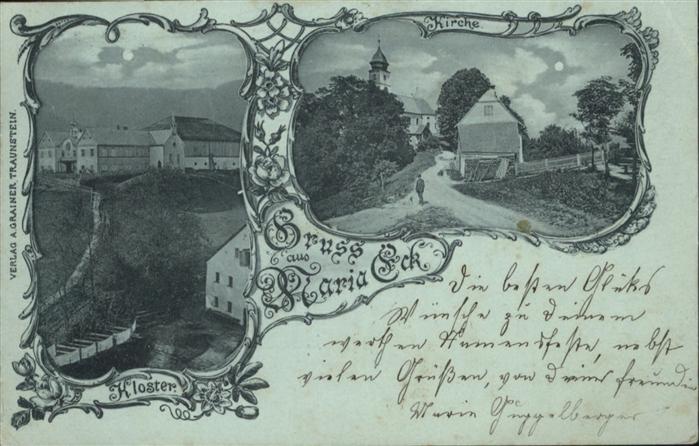 Kirche.
VERLAG A. GRAINER TRAUNSTEIN.
Gruss
aus
Maria Eck
Kloster.
Die besten Glüks
Wünsche zu deinem
werthen Namensfeste, nebst
vielen Grüßen, von deiner freundin
Marie